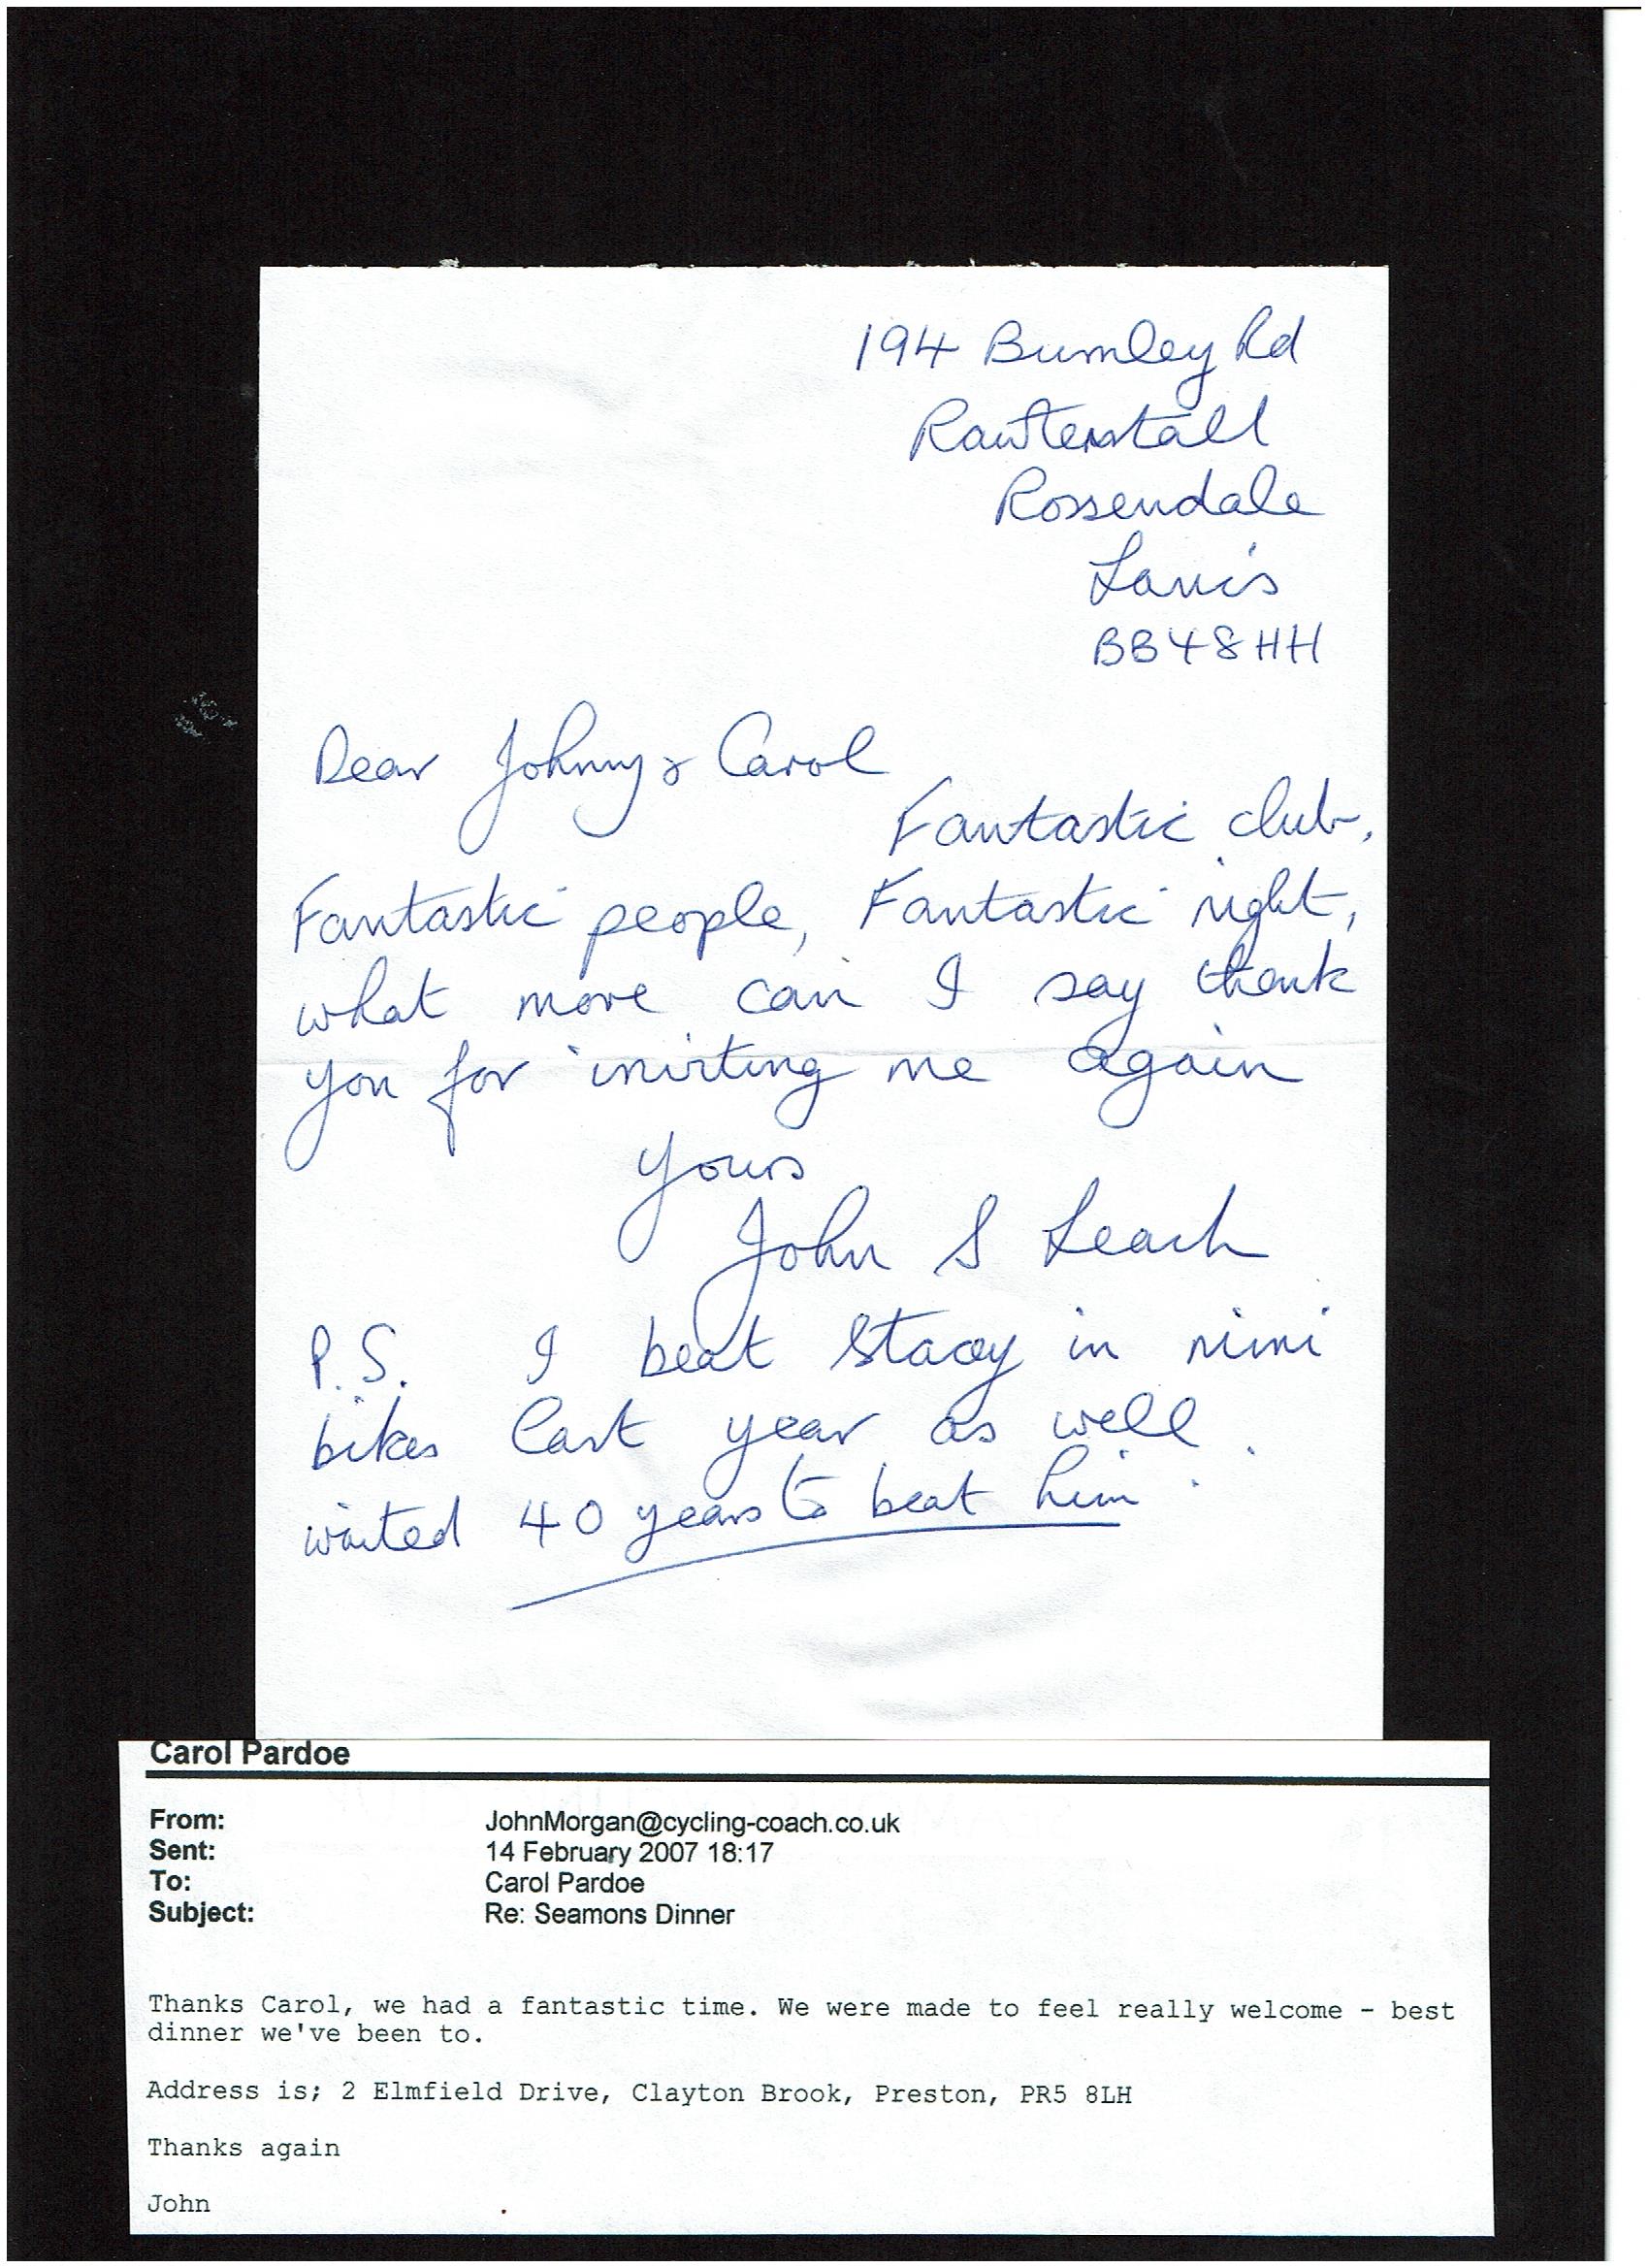 194 Burnley Rd
Rawtenstall
Rossendale
Lancs
BB4 8HH
Dear Johnny & Carol
Fantastic club,
Fantastic people, Fantastic night,
what more can I say thank
you for inviting me again
Yours
John S Leach
P.S. I beat Stacey in mini
bikes last year as well.
waited 40 years to beat him.
Carol Pardoe
From: JohnMorgan@cycling-coach.co.uk
Sent: 14 February 2007 18:17
To: Carol Pardoe
Subject: Re: Seamons Dinner
Thanks Carol, we had a fantastic time. We were made to feel really welcome - best
dinner we've been to.
Address is; 2 Elmfield Drive, Clayton Brook, Preston, PR5 8LH
Thanks again
John